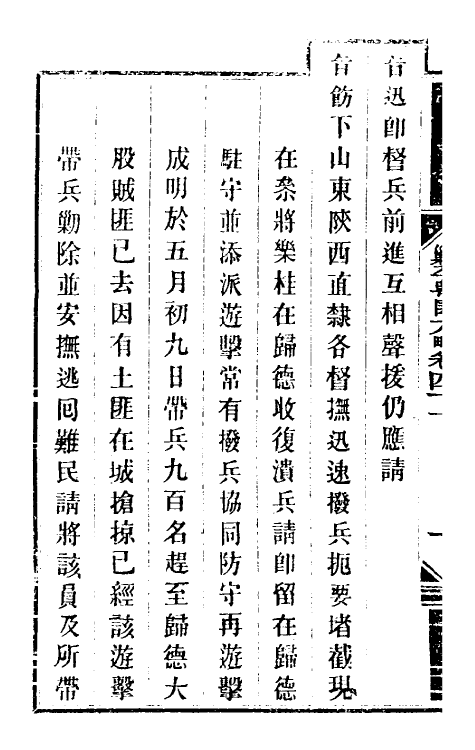 旨迅卽督兵前進互相聲援仍應請
旨飭下山東陝西直隸各督撫迅速撥兵扼要堵截現
在叅將樂桂在歸德收復潰兵請卽留在歸德
駐守並添派遊擊常有撥兵協同防守再遊擊
成明於五月初九日帶兵九百名趕至歸德大
股賊匪已去因有土匪在城搶掠已經該遊擊
帶兵勦除並安撫逃囘難民請將該員及所帶